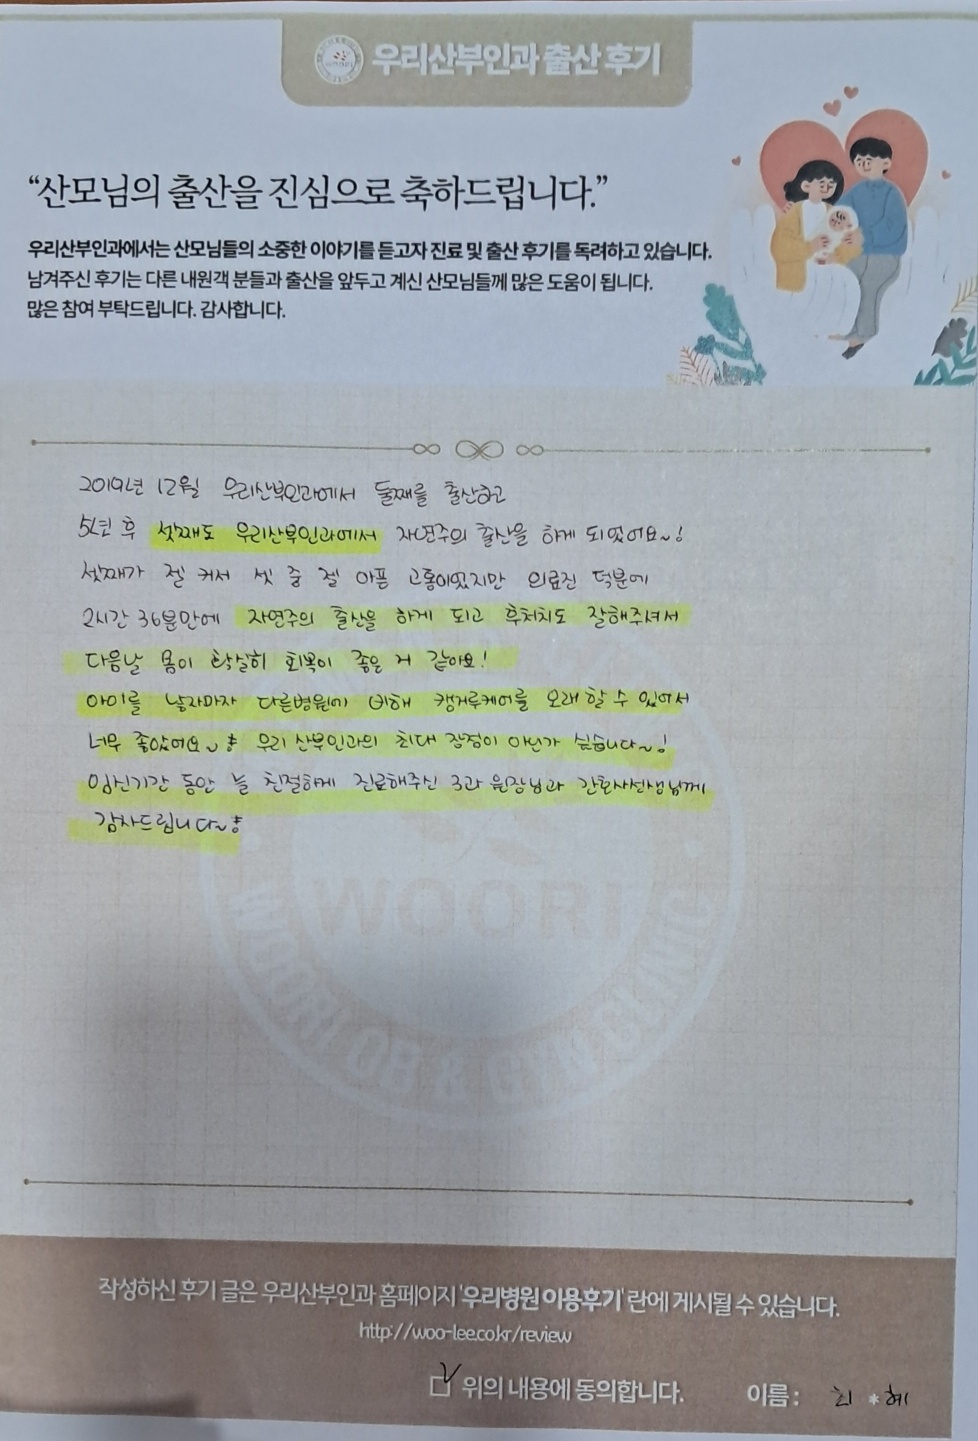 WOORI
우리산부인과 출산 후기
“산모님의 출산을 진심으로 축하드립니다.”
우리산부인과에서는 산모님들의 소중한 이야기를 듣고자 진료 및 출산 후기를 독려하고 있습니다.
남겨주신 후기는 다른 내원객 분들과 출산을 앞두고 계신 산모님들께 많은 도움이 됩니다.
많은 참여 부탁드립니다. 감사합니다.
2019년 12월 우리산부인과에서 둘째를 출산하고
5년 후 셋째도 우리산부인과에서 자연주의 출산을 하게 되었어요~!
셋째가 젤 커서 셋 중 젤 아픈 고통이었지만 의료진 덕분에
2시간 36분만에 자연주의 출산을 하게 되고 후처치도 잘해주셔서
다음날 몸이 확실히 회복이 좋은 거 같아요!
아이를 낳자마자 다른병원에 비해 캥거루케어를 오래 할 수 있어서
너무 좋았어요~ 우리 산부인과의 최대 장점이 아닌가 싶습니다~!
임신기간 동안 늘 친절하게 진료해주신 3과 원장님과 간호사선생님께
감사드립니다~
WOORI
WOORI OB & GYN CLINIC
작성하신 후기 글은 우리산부인과 홈페이지 '우리병원 이용후기' 란에 게시될 수 있습니다.
http://woo-lee.co.kr/review
위의 내용에 동의합니다. 이름 : 최 * 혜